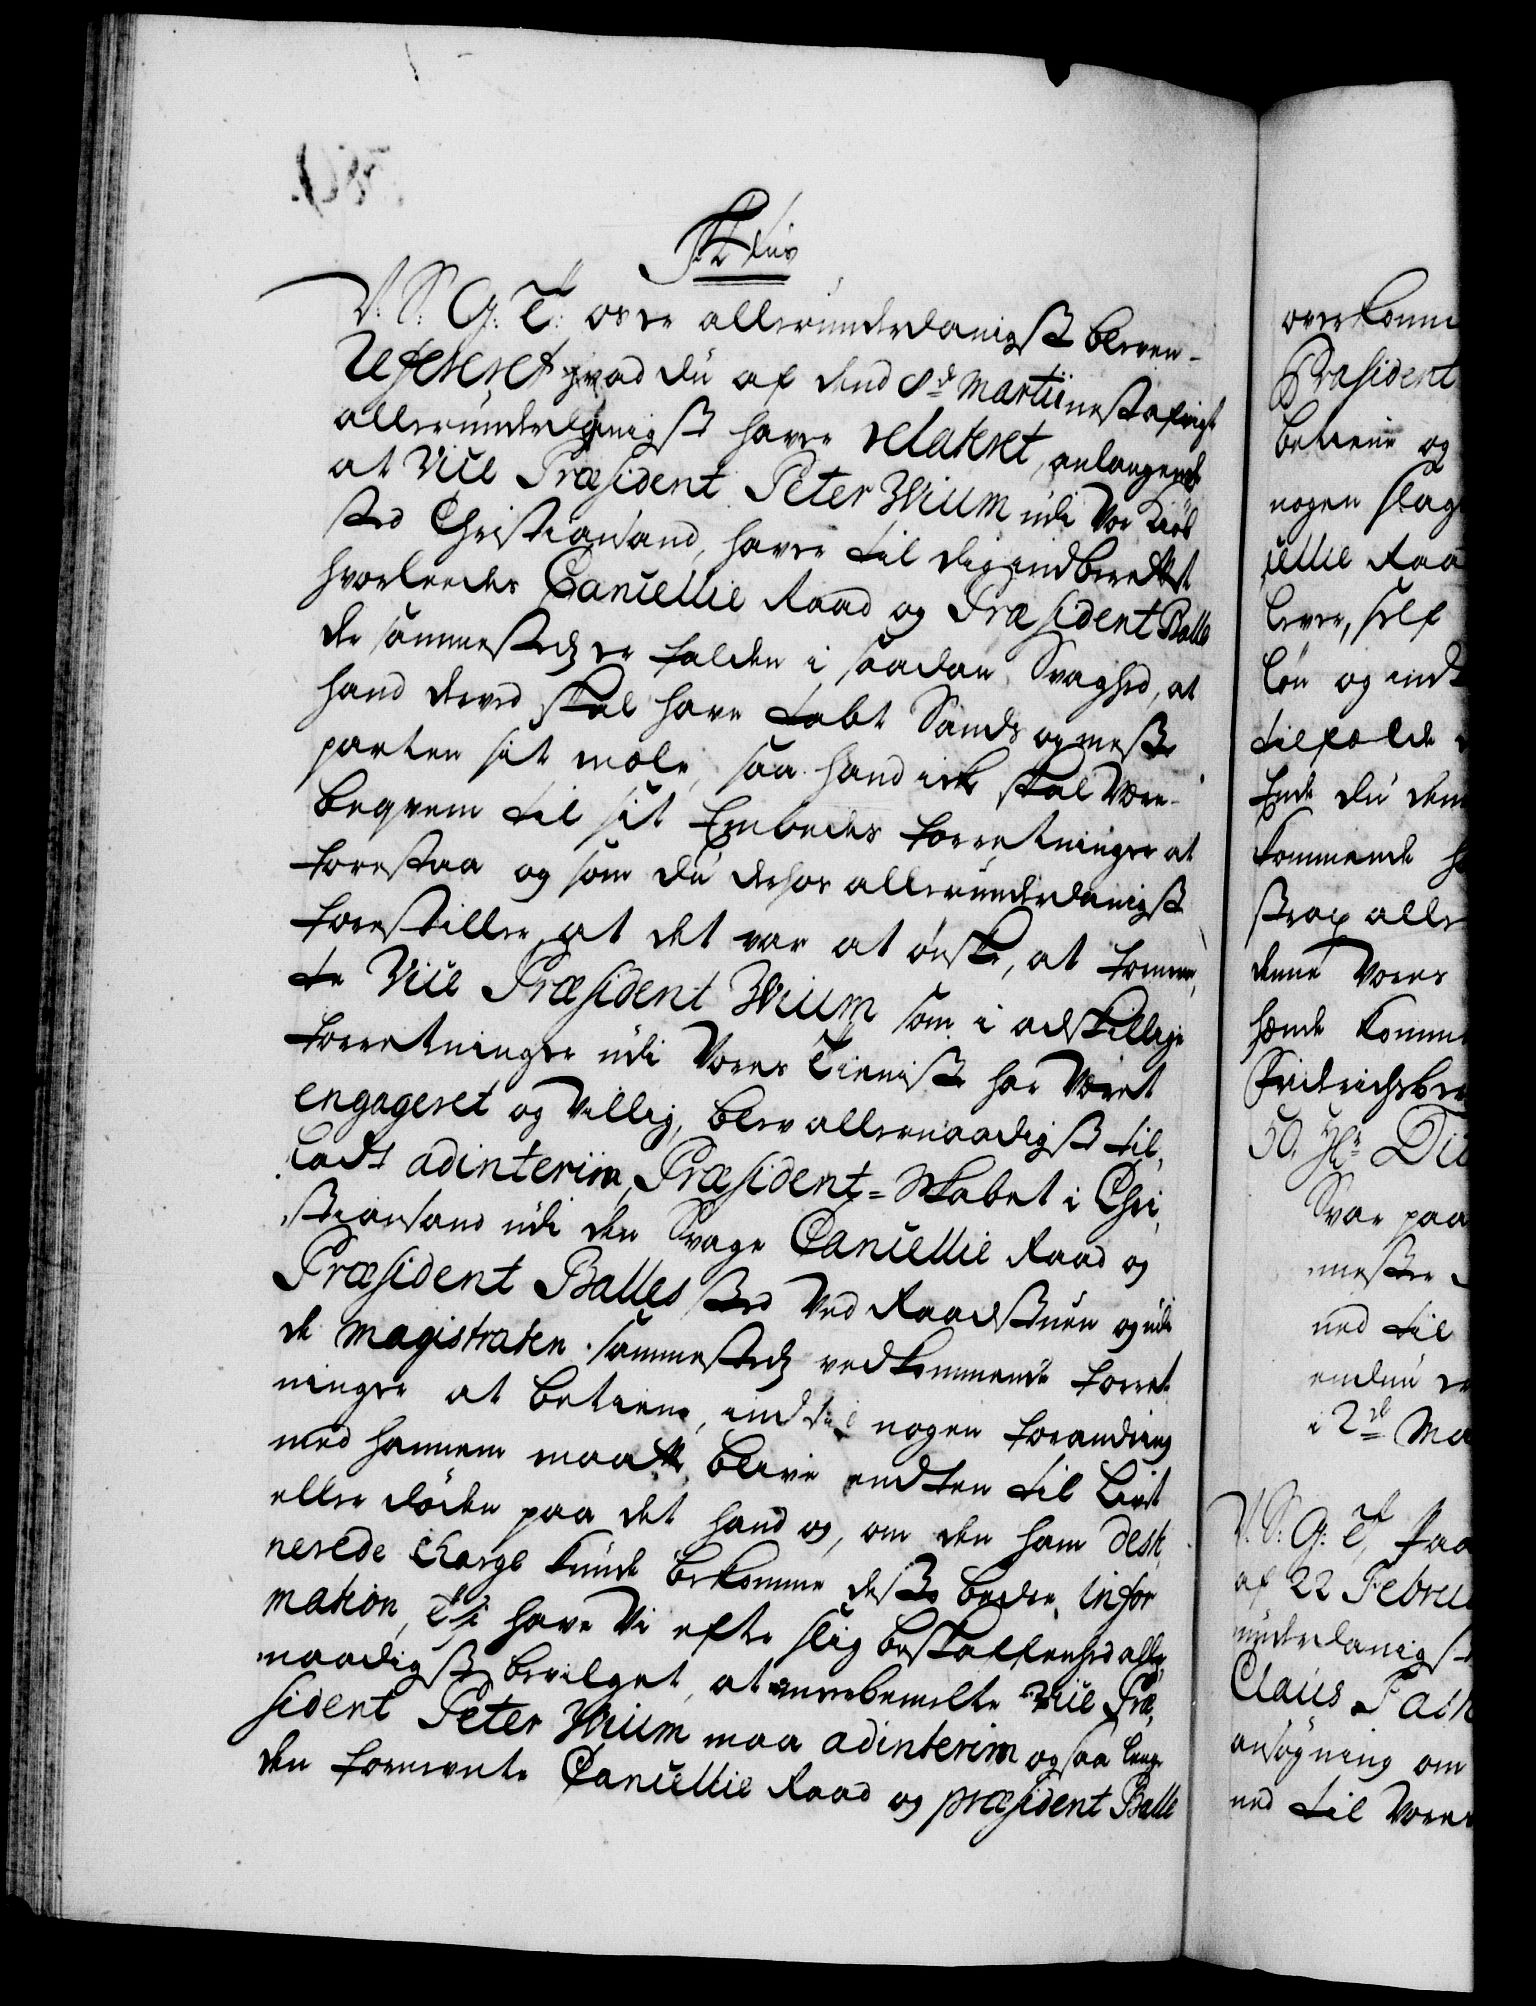 V: S: G: T: os er allerunderdanigst bleven
refereret hvad du af dend 8de Martii nestafvigt
allerunderdanigst haver relateret, anlangende
at Vice Præsident Peter Wium udi Vor Kiøb
sted Christiansand, haver til dig indberettet
hvorleedes Cancellie Raad og Præsident Balle
de sammesteds er falden i saadan Svaghed, at
hand derved skal have tabt Sands og meste
parten sit mæle, saa hand icke skal være
beqvem til sit Embedes forretninger at
forestaa og som du derhos allerunderdanigst
forestiller at det var at ønske, at formel,
te Vice Præsident Wium som i adskillige
forretninger udi Vores Tieniste har været
engageret og villig, blev allernaadigst til,
ladt ad interim, Præsident-Skabet i Chri,
stiansand udi den Svage Cancellie Raad og
Præsident Balles sted ved Raadstuen og udi
de Magistraten sammesteds vedkommende forret
ninger at betiene, indtil nogen forandring
med hannem maatte blive endten til Livet
eller døden paa det hand og, om den ham desti
nerede Charge kunde bekomme desto bedre infor
mation, Thi have Vi efter slig beskaffenhed aller,
naadigst bevilget, at ovenbemelte Vice Præ,
sident Peter Wium maa ad interim og saa længe
den formente Cancellie Raad og præsident Balle
overkomme
Præsident
betiene og
nogen slag
cellie Raa
lever, self
løn og ind
tilfalde
Ende du dem
kommende
strax aller
denne Vores
hænde komm
Fridrichsber
50. Hr. Dit
Svar paa
mester
ned til
endnu
i 2de Ma
V. S: G: T, Paa
af 22 Februa
underdanigst
Claus Fas
ansøgning om
ned til Vores